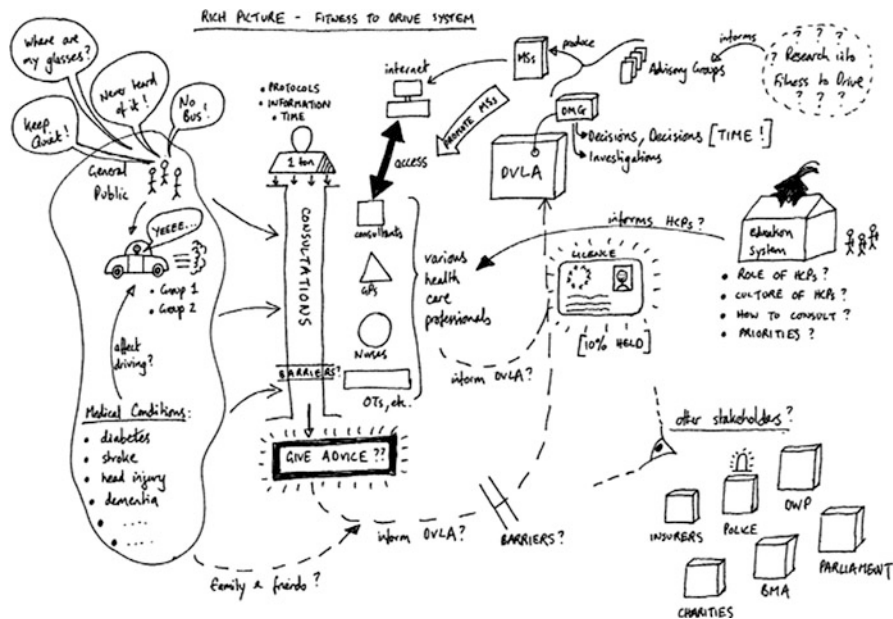 RICH PICTURE - FITNESS TO DRIVE SYSTEM
Where are
my glasses?
Never heard
of it!
No
Bus!
Keep
Quiet!
General
Public
YEEEE...
• Group 1
• Group 2
affect
driving?
Medical Conditions:
• diabetes
• stroke
• head injury
• dementia
• .....
• .....
family & friends?
• PROTOCOLS
• INFORMATION
• TIME
1 ton
CONSULTATIONS
BARRIERS?
GIVE ADVICE ??
internet
access
consultants
GPs
Nurses
OTs, etc.
various
health
care
professionals
PROMOTE MSs
MSs
produce
Advisory Groups
informs
? ? ?
? Research into
Fitness to Drive
? ? ?
DMG
Decisions, Decisions [TIME!]
Investigations
DVLA
informs HCPs?
education
system
• ROLE OF HCPs?
• CULTURE OF HCPs?
• HOW TO CONSULT?
• PRIORITIES?
LICENCE
[10% HELD]
inform DVLA?
inform DVLA?
BARRIERS?
other stakeholders?
INSURERS
POLICE
DWP
CHARITIES
BMA
PARLIAMENT